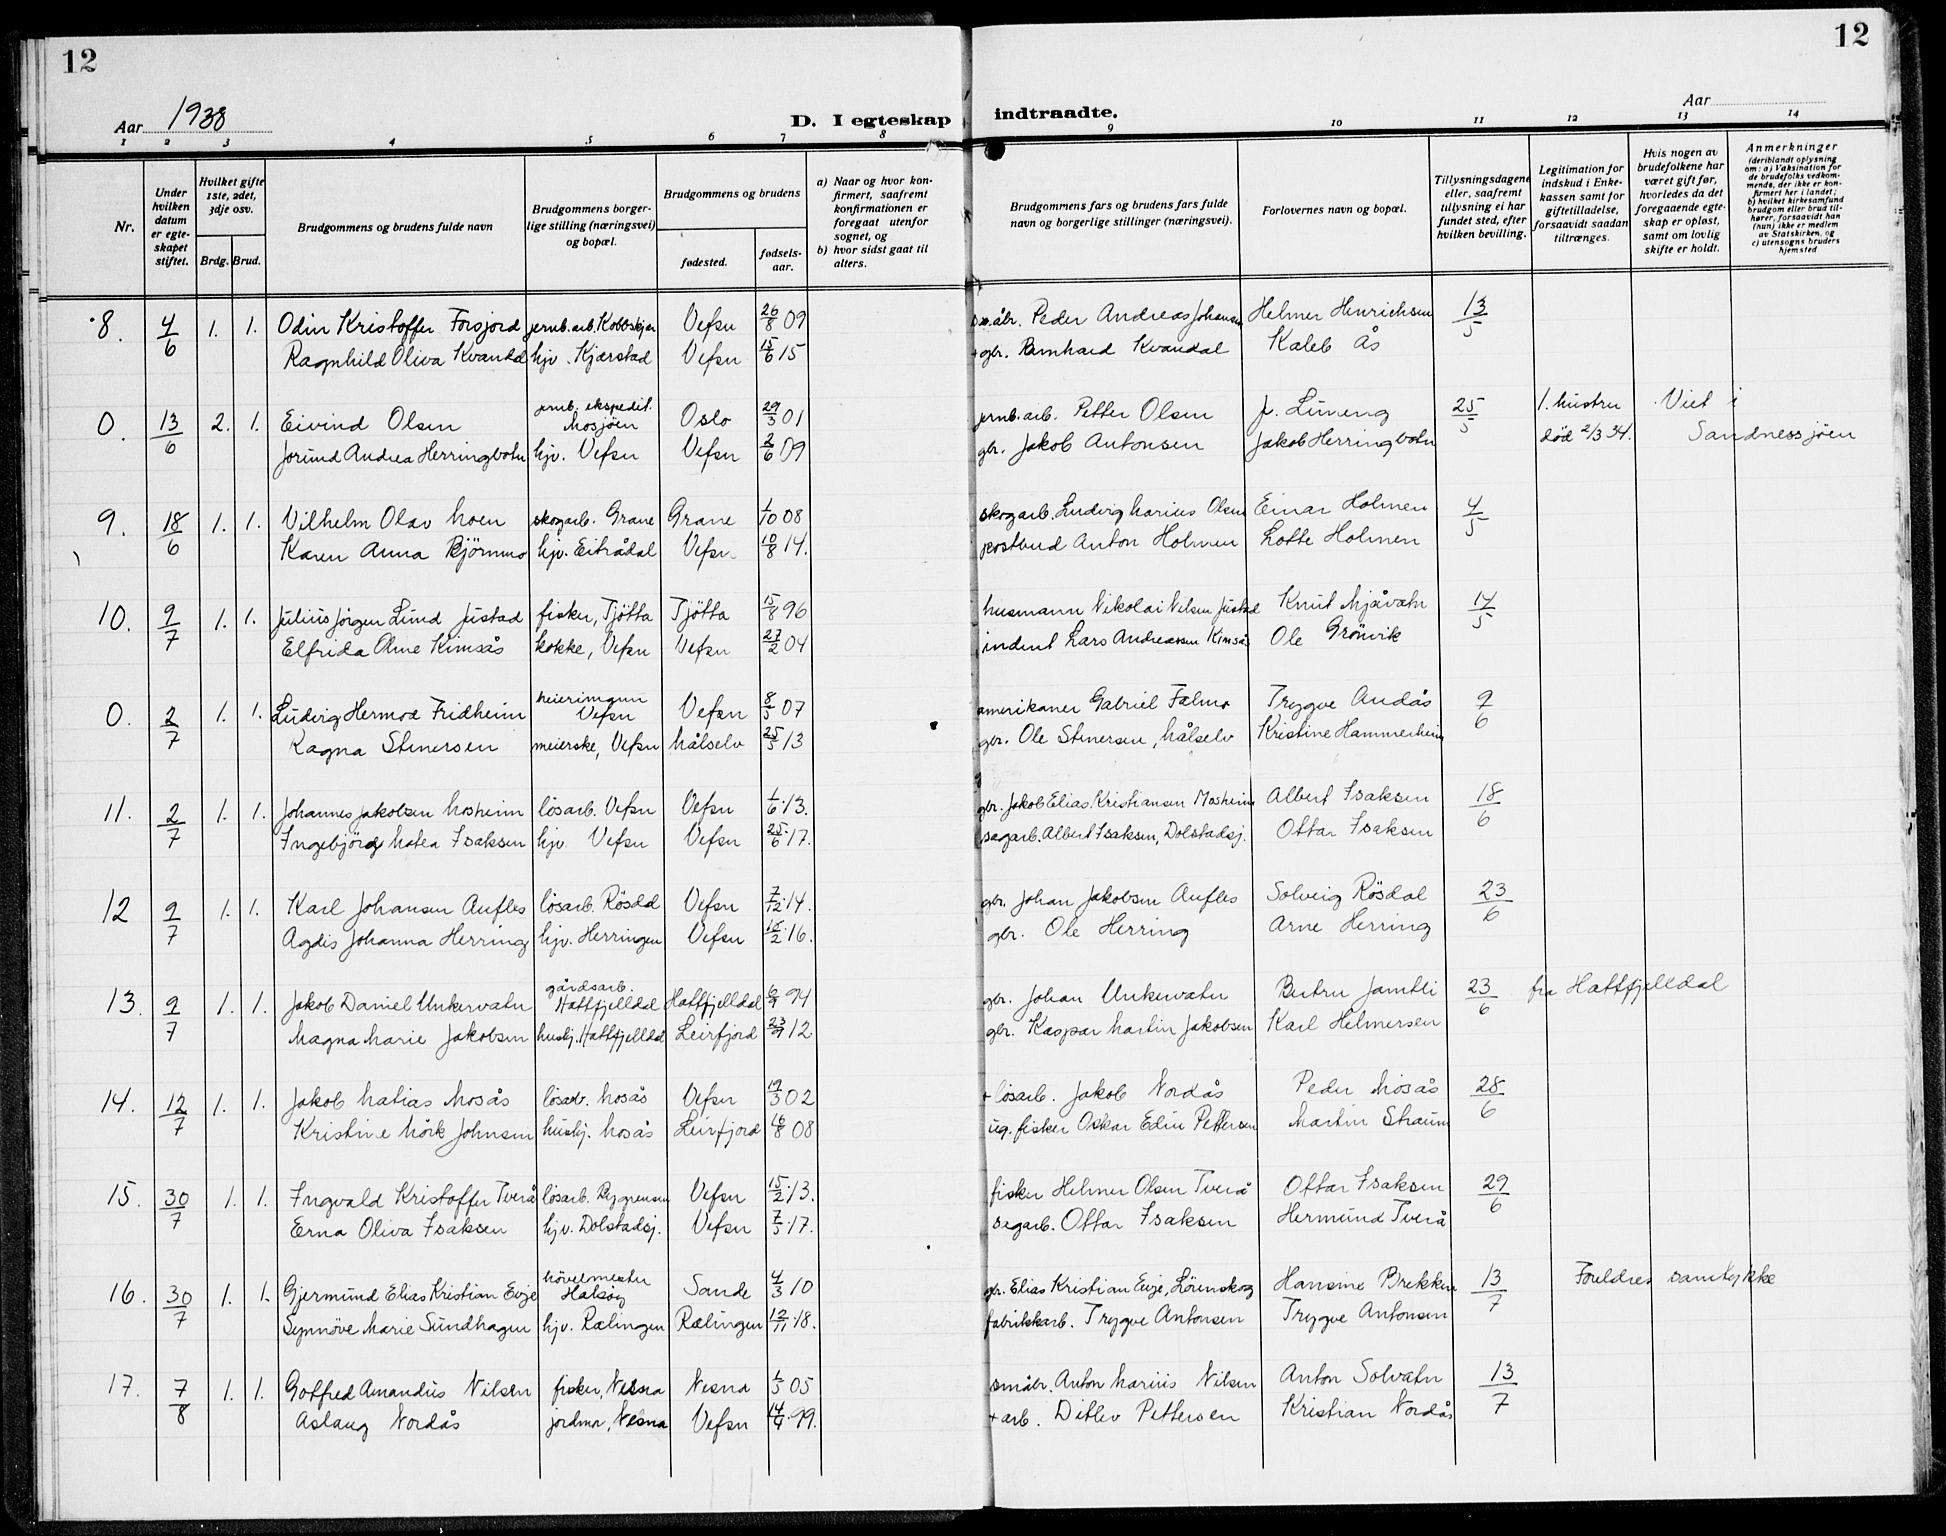 12
12
Aar 1938
D. I egteskap indtraadte.
Aar
1 2 3 4 5 6 7 8 9 10 11 12 13 14
Nr.
Under hvilken datum er egteskapet stiftet.
Hvilket gifte 1ste, 2det, 3dje osv.
Brdg. Brud.
Brudgommens og brudens fulde navn
Brudgommens borgerlige stilling (næringsvei) og bopæl.
Brudgommens og brudens
fødested.
fødselsaar.
a) Naar og hvor konfirmert, saafremt konfirmationen er foregaat utenfor sognet, og
b) hvor sidst gaat til alters.
Brudgommens fars og brudens fars fulde navn og borgerlige stillinger (næringsvei).
Forlovernes navn og bopæl.
Tillysningsdagene eller, saafremt tillysning ei har fundet sted, efter hvilken bevilling.
Legitimation for indskud i Enkekassen samt for giftetilladelse, forsaavidt saadan tiltrænges.
Hvis nogen av brudefolkene har været gift før, hvorledes da det foregaaende egteskap er opløst, samt om lovlig skifte er holdt.
Anmerkninger (deriblandt oplysning om: a) Vaksination for de brudefolks vedkommende, der ikke er konfirmert her i landet; b) hvilket kirkesamfund brudgom eller brud tilhører, forsaavidt han (hun) ikke er medlem av Statskirken, og c) utensogns bruders hjemsted
8. 4/6 1. 1. Odin Kristoffer Forsjord jernb.arb. Kobbskjær Vefsn 26/8 09 småbr. Peder Andreas Johansen Helmer Henrichsen 13/5
Ragnhild Oliva Kvandal hjv. Kjærstad Vefsn 15/6 15 + gbr. Bernhard Kvandal Kaleb Ås
0. 13/6 2. 1. Eivind Olsen jernb. ekspedit. Mosjøen Oslo 29/3 01 jernb.arb. Petter Olsen J. Lüneng 25/5 1. hustru Viet i
Jorund Andrea Herringbotn hjv. Vefsn Vefsn 2/6 09 gbr. Jakob Antonsen Jakob Herringbotn død 2/3 34. Sandnessjøen
9. 18/6 1. 1. Vilhelm Olav Moen skogarb. Grane Grane 1/10 08 skogarb. Ludvig Marius Olsen Einar Holmen 4/5
Karen Anna Bjørnmo hjv. Eiterådal Vefsn 10/8 14. postbud Anton Holmen Lotte Holmen
10. 9/7 1. 1. Julius Jørgen Lund Justad fisker, Tjøtta Tjøtta 15/8 96 husmann Nikolai Nilsen Justad Knut Mjåvatn 14/5
Elfrida Aine Kimsås kokke, Vefsn Vefsn 27/2 04 indent Lars Andreassen Kimsås Ole Grønvik
0. 2/7 1. 1. Ludvig Hermod Fridheim meierimann Vefsn Vefsn 8/5 07 amerikaner Gabriel Falmo Trygve Andås 9/6
Ragna Stenersen meierske, Vefsn Målselv 25/5 13 gbr. Ole Stenersen, Målselv Kristine Hammerheim
11. 2/7 1. 1. Johannes Jakobsen Mosheim løsarb. Vefsn Vefsn 1/6 13. gbr. Jakob Elias Kristiansen Mosheim Albert Isaksen 18/6
Ingebjørg Matea Isaksen hjv. Vefsn Vefsn 25/6 17. sagarb. Albert Isaksen, Dolstadsj. Ottar Isaksen
12 9/7 1. 1. Karl Johansen Aufles løsarb. Røsdal Vefsn 7/12 14. gbr. Johan Jakobsen Aufles Solveig Røsdal 23/6
Agdis Johanna Herring hjv. Herringen Vefsn 15/2 16. gbr. Ole Herring Arne Herring
13. 9/7 1. 1. Jakob Daniel Unkervatn gårdsarb. Hattfjelldal Hattfjelldal 6/9 94 gbr. Johan Unkervatn Jamtli 23/6 fra Hattfjelldal
Magna Marie Jakobsen hushj. Hattfjelldal Leirfjord 23/9 12 gbr. Kaspar Martin Jakobsen Karl Helmersen
14. 12/7 1. 1. Jakob Matias Mosås løsarb. Mosås Vefsn 19/3 02 + løsarb. Jakob Nordås Peder Mosås 28/6
Kristine Mörk Johnsen hushj. Mosås Leirfjord 16/8 08 ug. fisker Oskar Edin Pettersen Martin Straum
15. 30/7 1. 1. Ingvald Kristoffer Tverå løsarb. Vefsn 15/2 13. fisker Helmer Olsen Tverå Ottar Isaksen 29/6
Erna Oliva Isaksen hjv. Dolstadsj. Vefsn 7/5 17. sagarb. Ottar Isaksen Hermund Tverå
16. 30/7 1. 1. Gjermund Elias Kristian Evje høvelmester Halsøy Sande 4/3 10 gbr. Elias Kristian Evje, Lørenskog Hansine Brekken 13/7 Foreldres samtykke
Synnøve Marie Sundhagen hjv. Rælingen Rælingen 12/11 18. fabrikkarb. Trygve Antonsen Trygve Antonsen
17. 7/8 1. 1. Gotfred Amandus Nilsen fisker, Nesna Nesna 1/5 05 småbr. Anton Marius Nilsen Anton Solvatn 13/7
Aslaug Nordås jordmor, Nesna Vefsn 14/4 99. + arb. Ditlev Pettersen Kristian Nordås